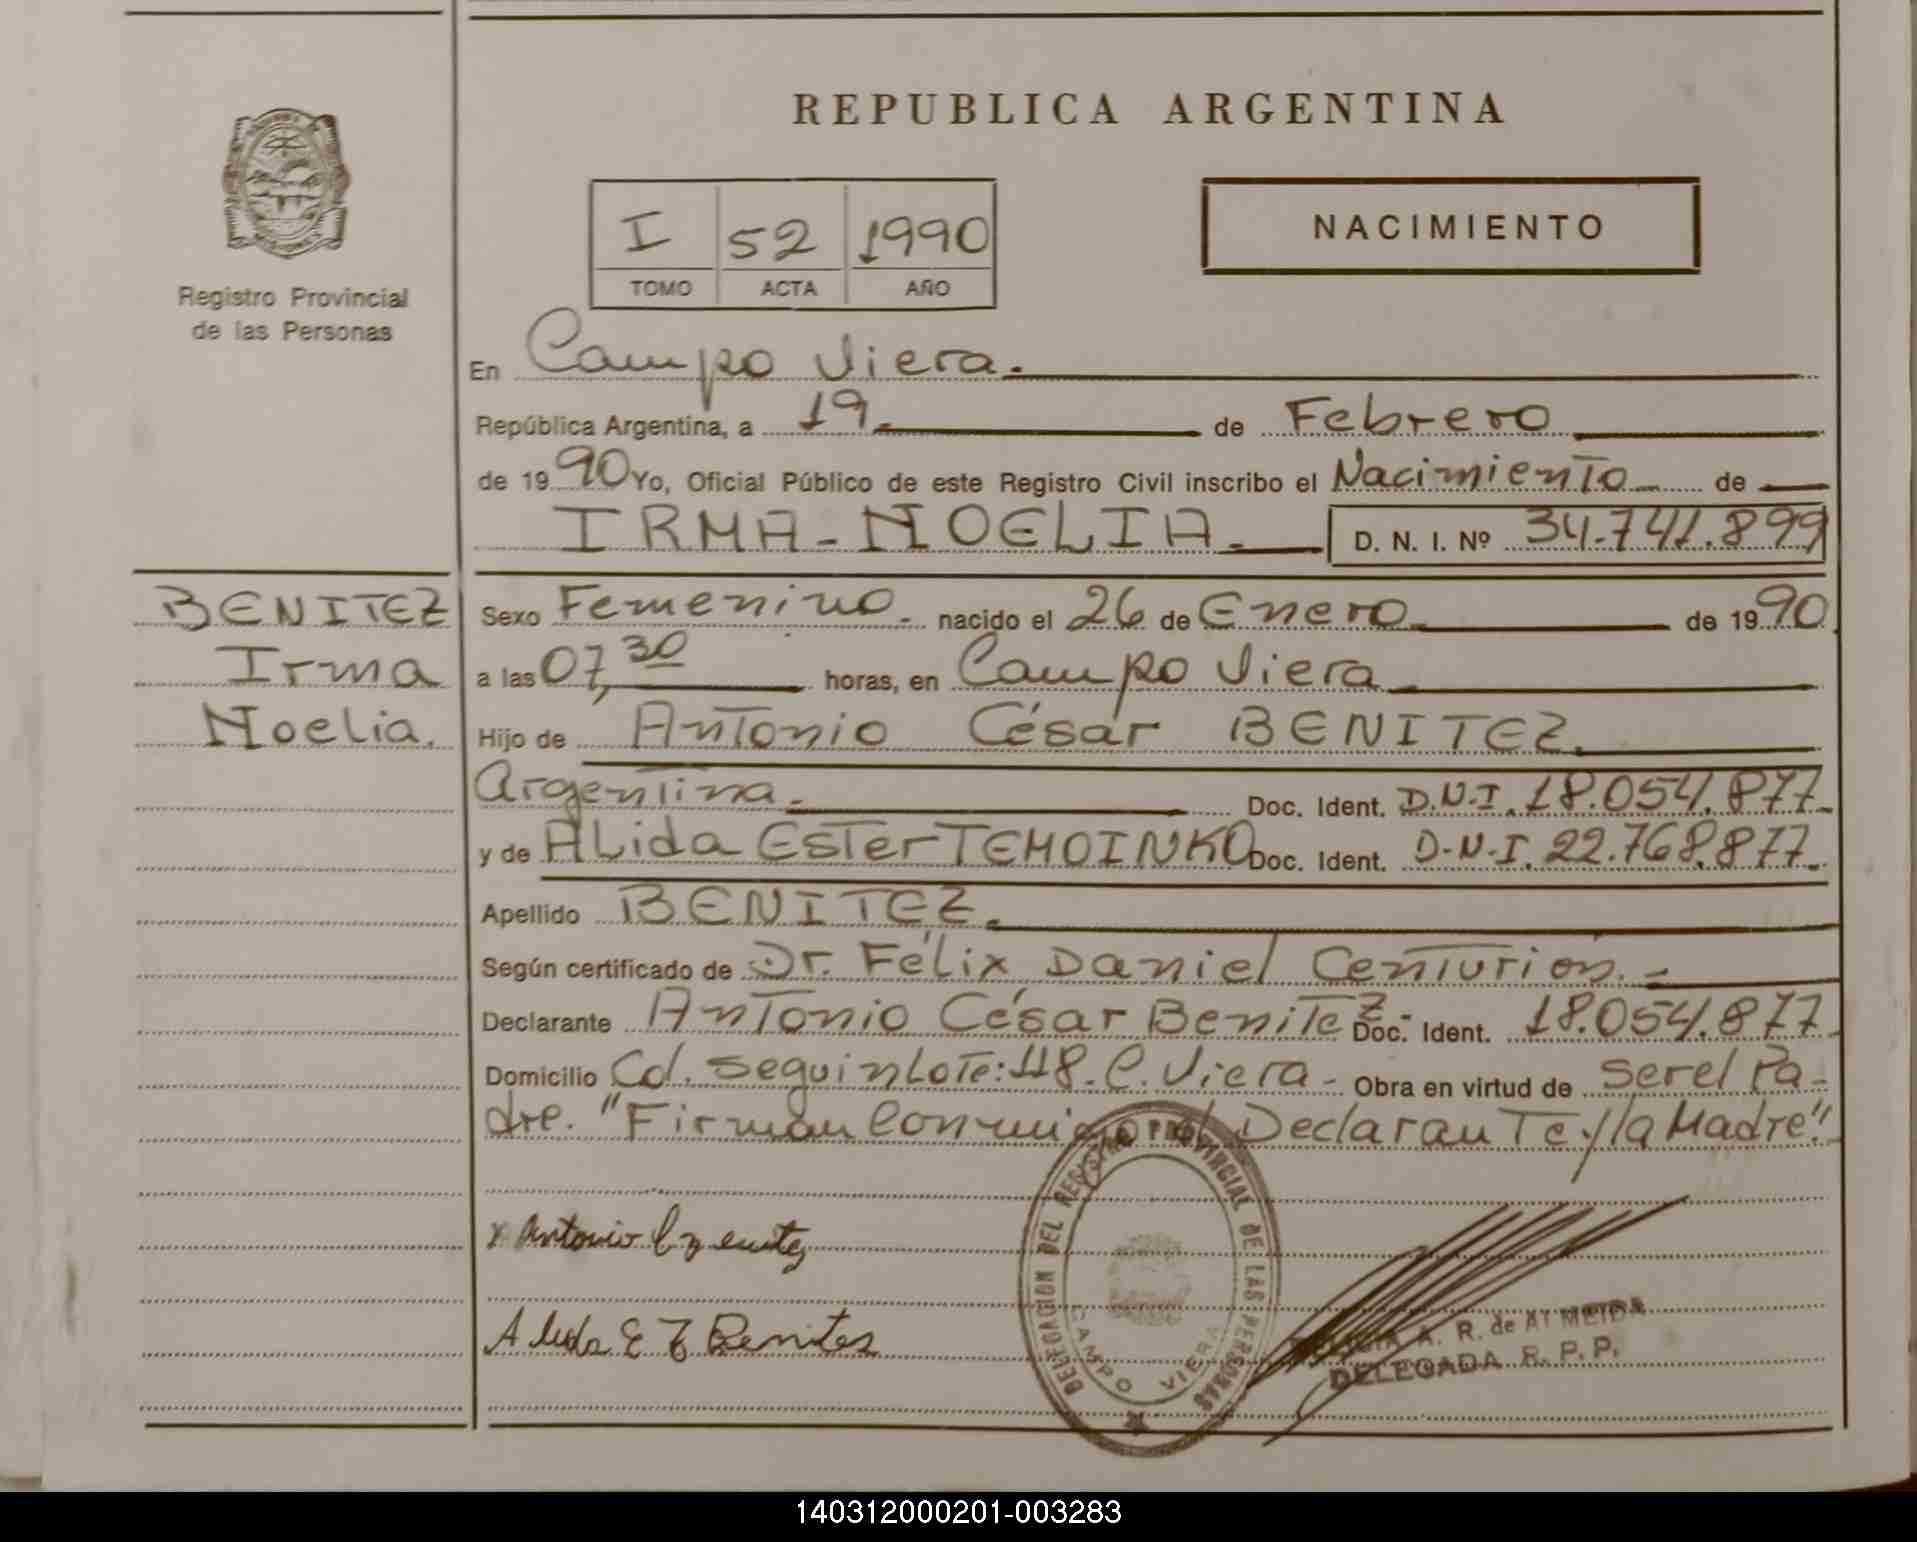 REPUBLICA ARGENTINA
Registro Provincial
de las Personas
I 52 1990
TOMO ACTA AÑO
NACIMIENTO
En Campo Viera.
República Argentina, a 19 de Febrero
de 1990 Yo, Oficial Público de este Registro Civil inscribo el Nacimiento de
IRMA-NOELIA. D. N. I. Nº 34.741.899
BENITEZ
Irma
Noelia.
Sexo Femenino. nacido el 26 de Enero de 1990
a las 07,30 horas, en Campo Viera
Hijo de Antonio César BENITEZ.
Argentina. Doc. Ident. D.N.I. 18.054.877.
y de ALida Ester TEMOINKO Doc. Ident. D-N-I. 22.768.877.
Apellido BENITEZ.
Según certificado de Dr. Félix Daniel Centurión.
Declarante Antonio César Benitez. Doc. Ident. 18.054.877
Domicilio Cd. Seguin Lote: 118. C. Viera - Obra en virtud de ser el Pa-
dre. "Firman conmigo el Declarante y la Madre".
x Antonio C Benitez
Alida E T Benites
DELEGACION DEL REGISTRO PROVINCIAL DE LAS PERSONAS
CAMPO VIERA
A. R. de ALMEIDA
DELEGADA R. P. P.
140312000201-003283